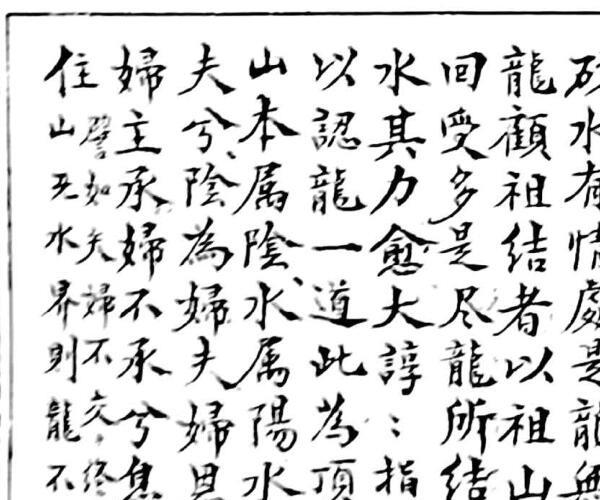 砂水有情處是龍無
龍顧祖結者以祖山
回受多是尽龍所結
水其力愈大諄〻指
以認龍一道此為頂
山本属陰、水属陽水
夫兮、陰為婦夫婦恩
婦主承婦不承兮息
住譬如夫婦不交、終
山无水界則龍不